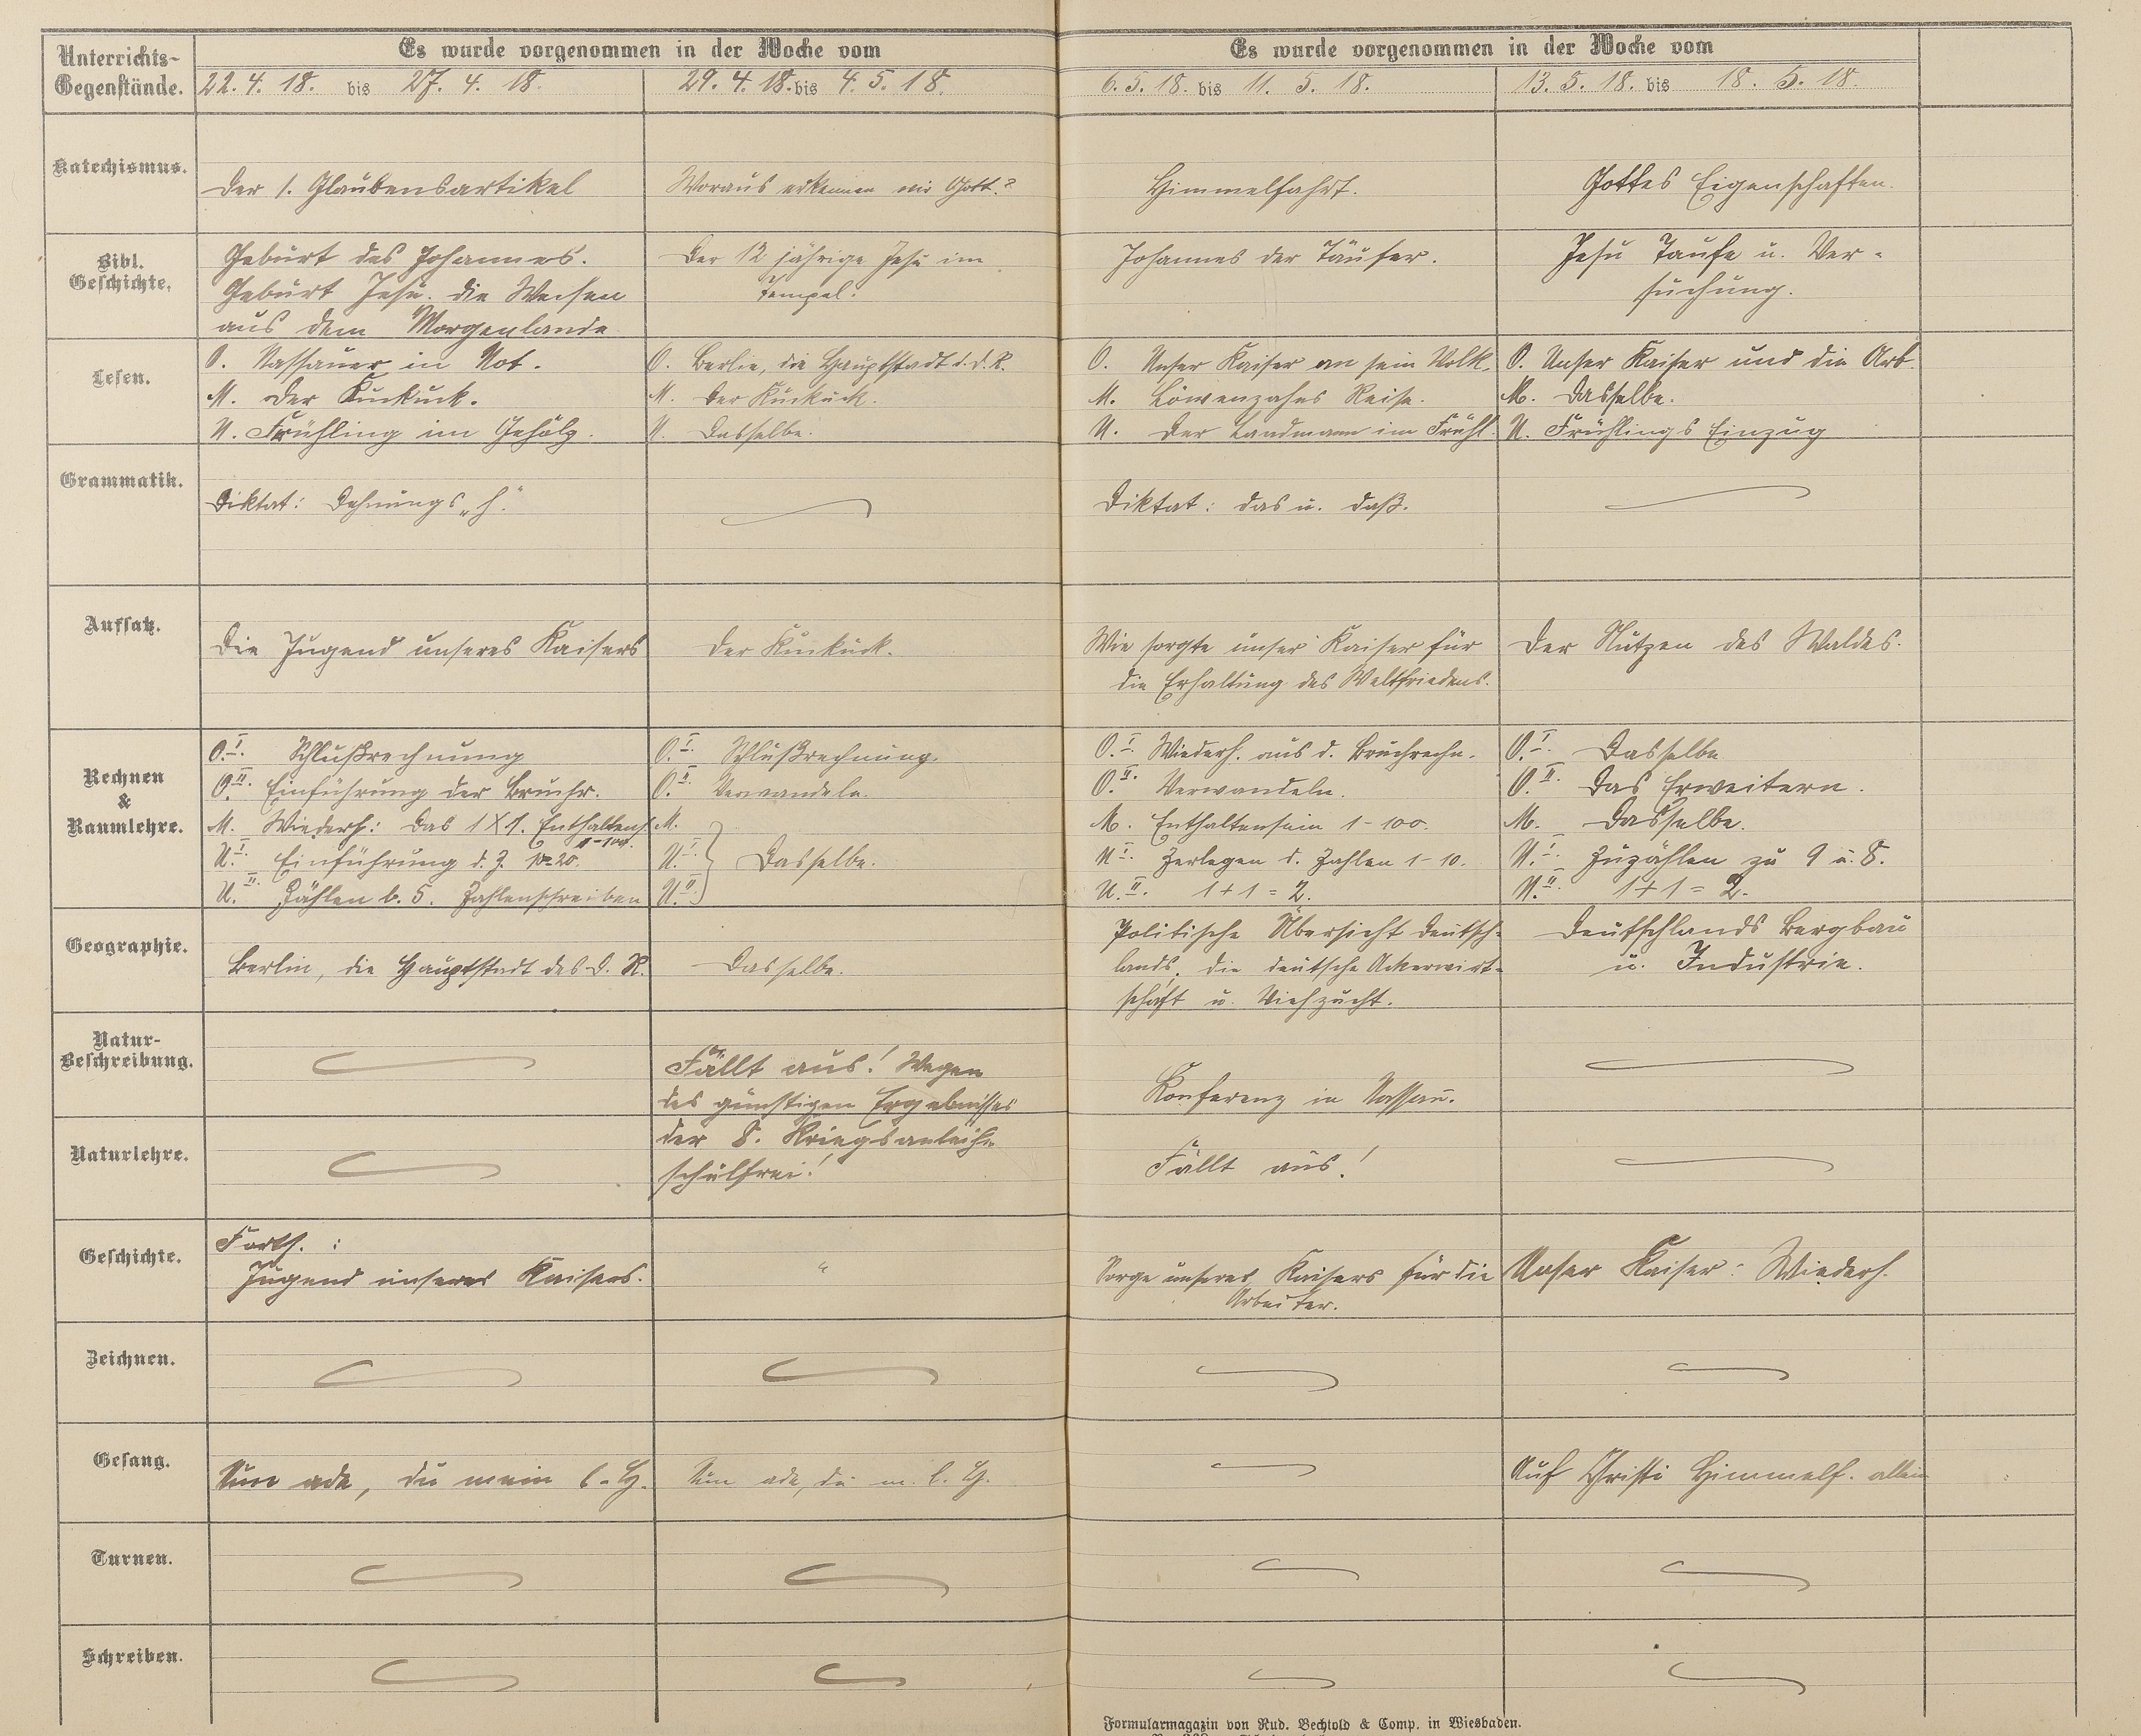 Unterrichts-
Gegenstände.
Es wurde vorgenommen in der Woche vom
Es wurde vorgenommen in der Woche vom
22. 4. 18. bis 27. 4. 18.
29. 4. 18. bis 4. 5. 18.
6. 5. 18. bis 11. 5. 18.
13. 5. 18. bis 18. 5. 18.
Katechismus.
Der 1. Glaubensartikel
Woraus erkennen wir Gott?
Himmelfahrt.
Gottes Eigenschaften.
Bibl.
Geschichte.
Geburt des Johannes.
Geburt Jesu. Die Weisen
aus dem Morgenlande
Der 12 jährige Jesu im
Tempel.
Johannes der Täufer.
Jesu Taufe u. Ver-
suchung.
Lesen.
O. Nassauer in Not.
M. Der Kuckuck.
U. Frühling im Gehölz.
O. Berlin, die Hauptstadt d. d. R.
M. Der Kuckuck.
U. Dasselbe.
O. Unser Kaiser an sein Volk.
M. Löwenzahns Reise.
U. Der Landmann im Frühl.
O. Unser Kaiser und die Arb.
M. Dasselbe.
U. Frühlings Einzug
Grammatik.
Diktat: Dehnungs „h“.
Diktat: das u. daß.
Aufsatz.
Die Jugend unseres Kaisers
Der Kuckuck.
Wie sorgte unser Kaiser für
die Erhaltung des Weltfriedens.
Der Nutzen des Waldes.
Rechnen
&
Raumlehre.
O. I. Schlußrechnung
O. II. Einführung der Bruchr.
M. Wiederh: Das 1X1. Enthaltens.
1-100.
U. I. Einführung d. Z. 10-20.
U. II. Zählen b. 5. Zahlenschreiben
O. I. Schlußrechnung.
O. II. Verwandeln.
M.
U. I. Dasselbe.
U. II.
O. I. Wiederh. aus d. Bruchrechn.
O. II. Verwandeln.
M. Enthaltensein 1-100.
U. I. Zerlegen d. Zahlen 1-10.
U. II. 1 + 1 = 2.
O. I. Dasselbe
O. II. Das Erweitern.
M. Dasselbe.
U. I. Zuzählen zu 9 u. 8.
U. II. 1 + 1 = 2.
Geographie.
Berlin, die Hauptstadt des D. R.
Dasselbe.
Politische Übersicht Deutsch-
lands. Die deutsche Ackerwirt-
schaft u. Viehzucht.
Deutschlands Bergbau
u. Industrie.
Natur-
Beschreibung.
Fällt aus! Wegen
des günstigen Ergebnisses
der 8. Kriegsanleihe
schulfrei!
Konferenz in Nassau.
Naturlehre.
Fällt aus!
Geschichte.
Forts. :
Jugend unseres Kaisers.
"
Sorge unseres Kaisers für die
Arbeiter.
Unser Kaiser: Wiederh.
Zeichnen.
Gesang.
Nun ade, du mein l. H.
Nun ade, du m. l. H.
Auf Christi Himmelf. allein
Turnen.
Schreiben.
Formularmagazin von Rud. Bechtold & Comp. in Wiesbaden.